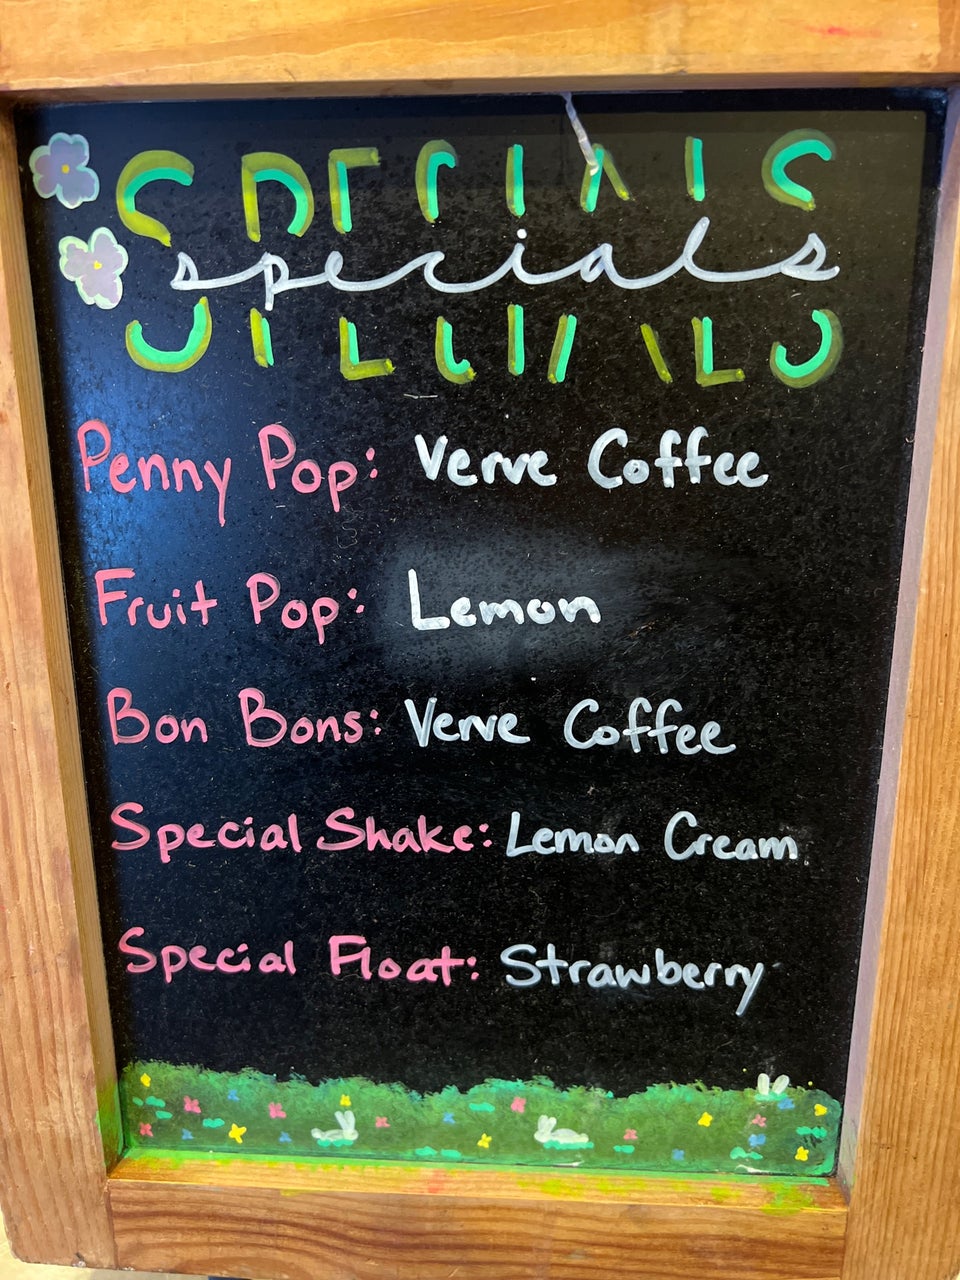 SPECIALS
specials
Penny Pop: Verve Coffee
Fruit Pop: Lemon
Bon Bons: Verve Coffee
Special Shake: Lemon Cream
Special Float: Strawberry